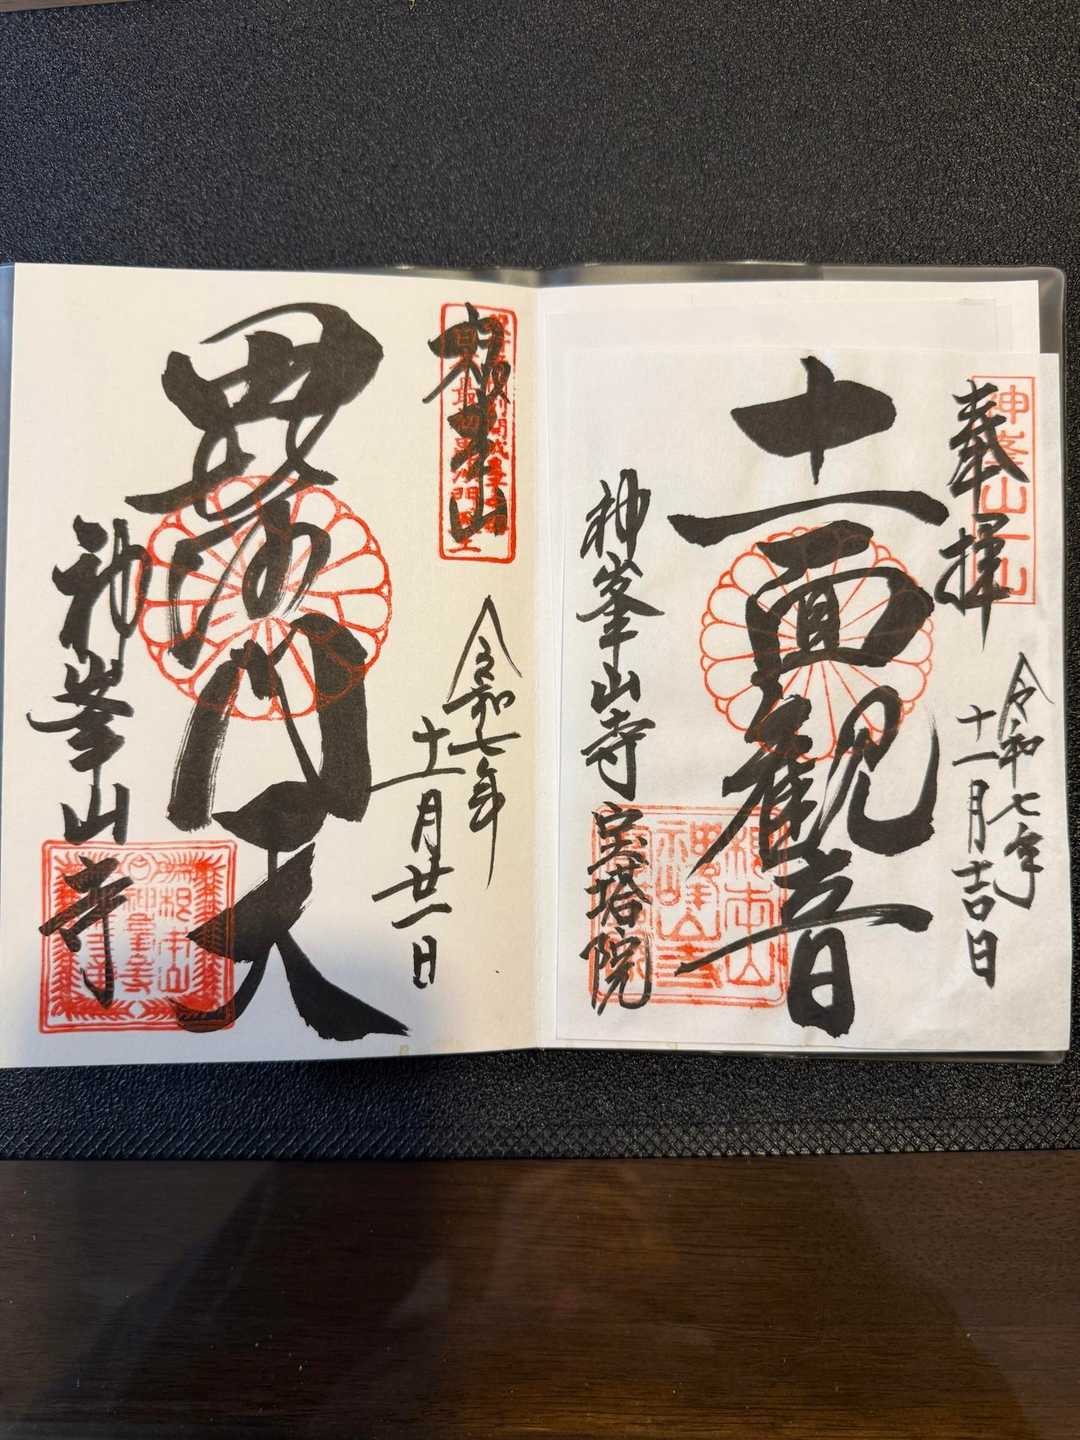 奉拝
令和七年
十一月吉日
十一面観音
神峯山寺 宝塔院
根本山
令和七年
十一月廿一日
毘沙門天
神峯山寺